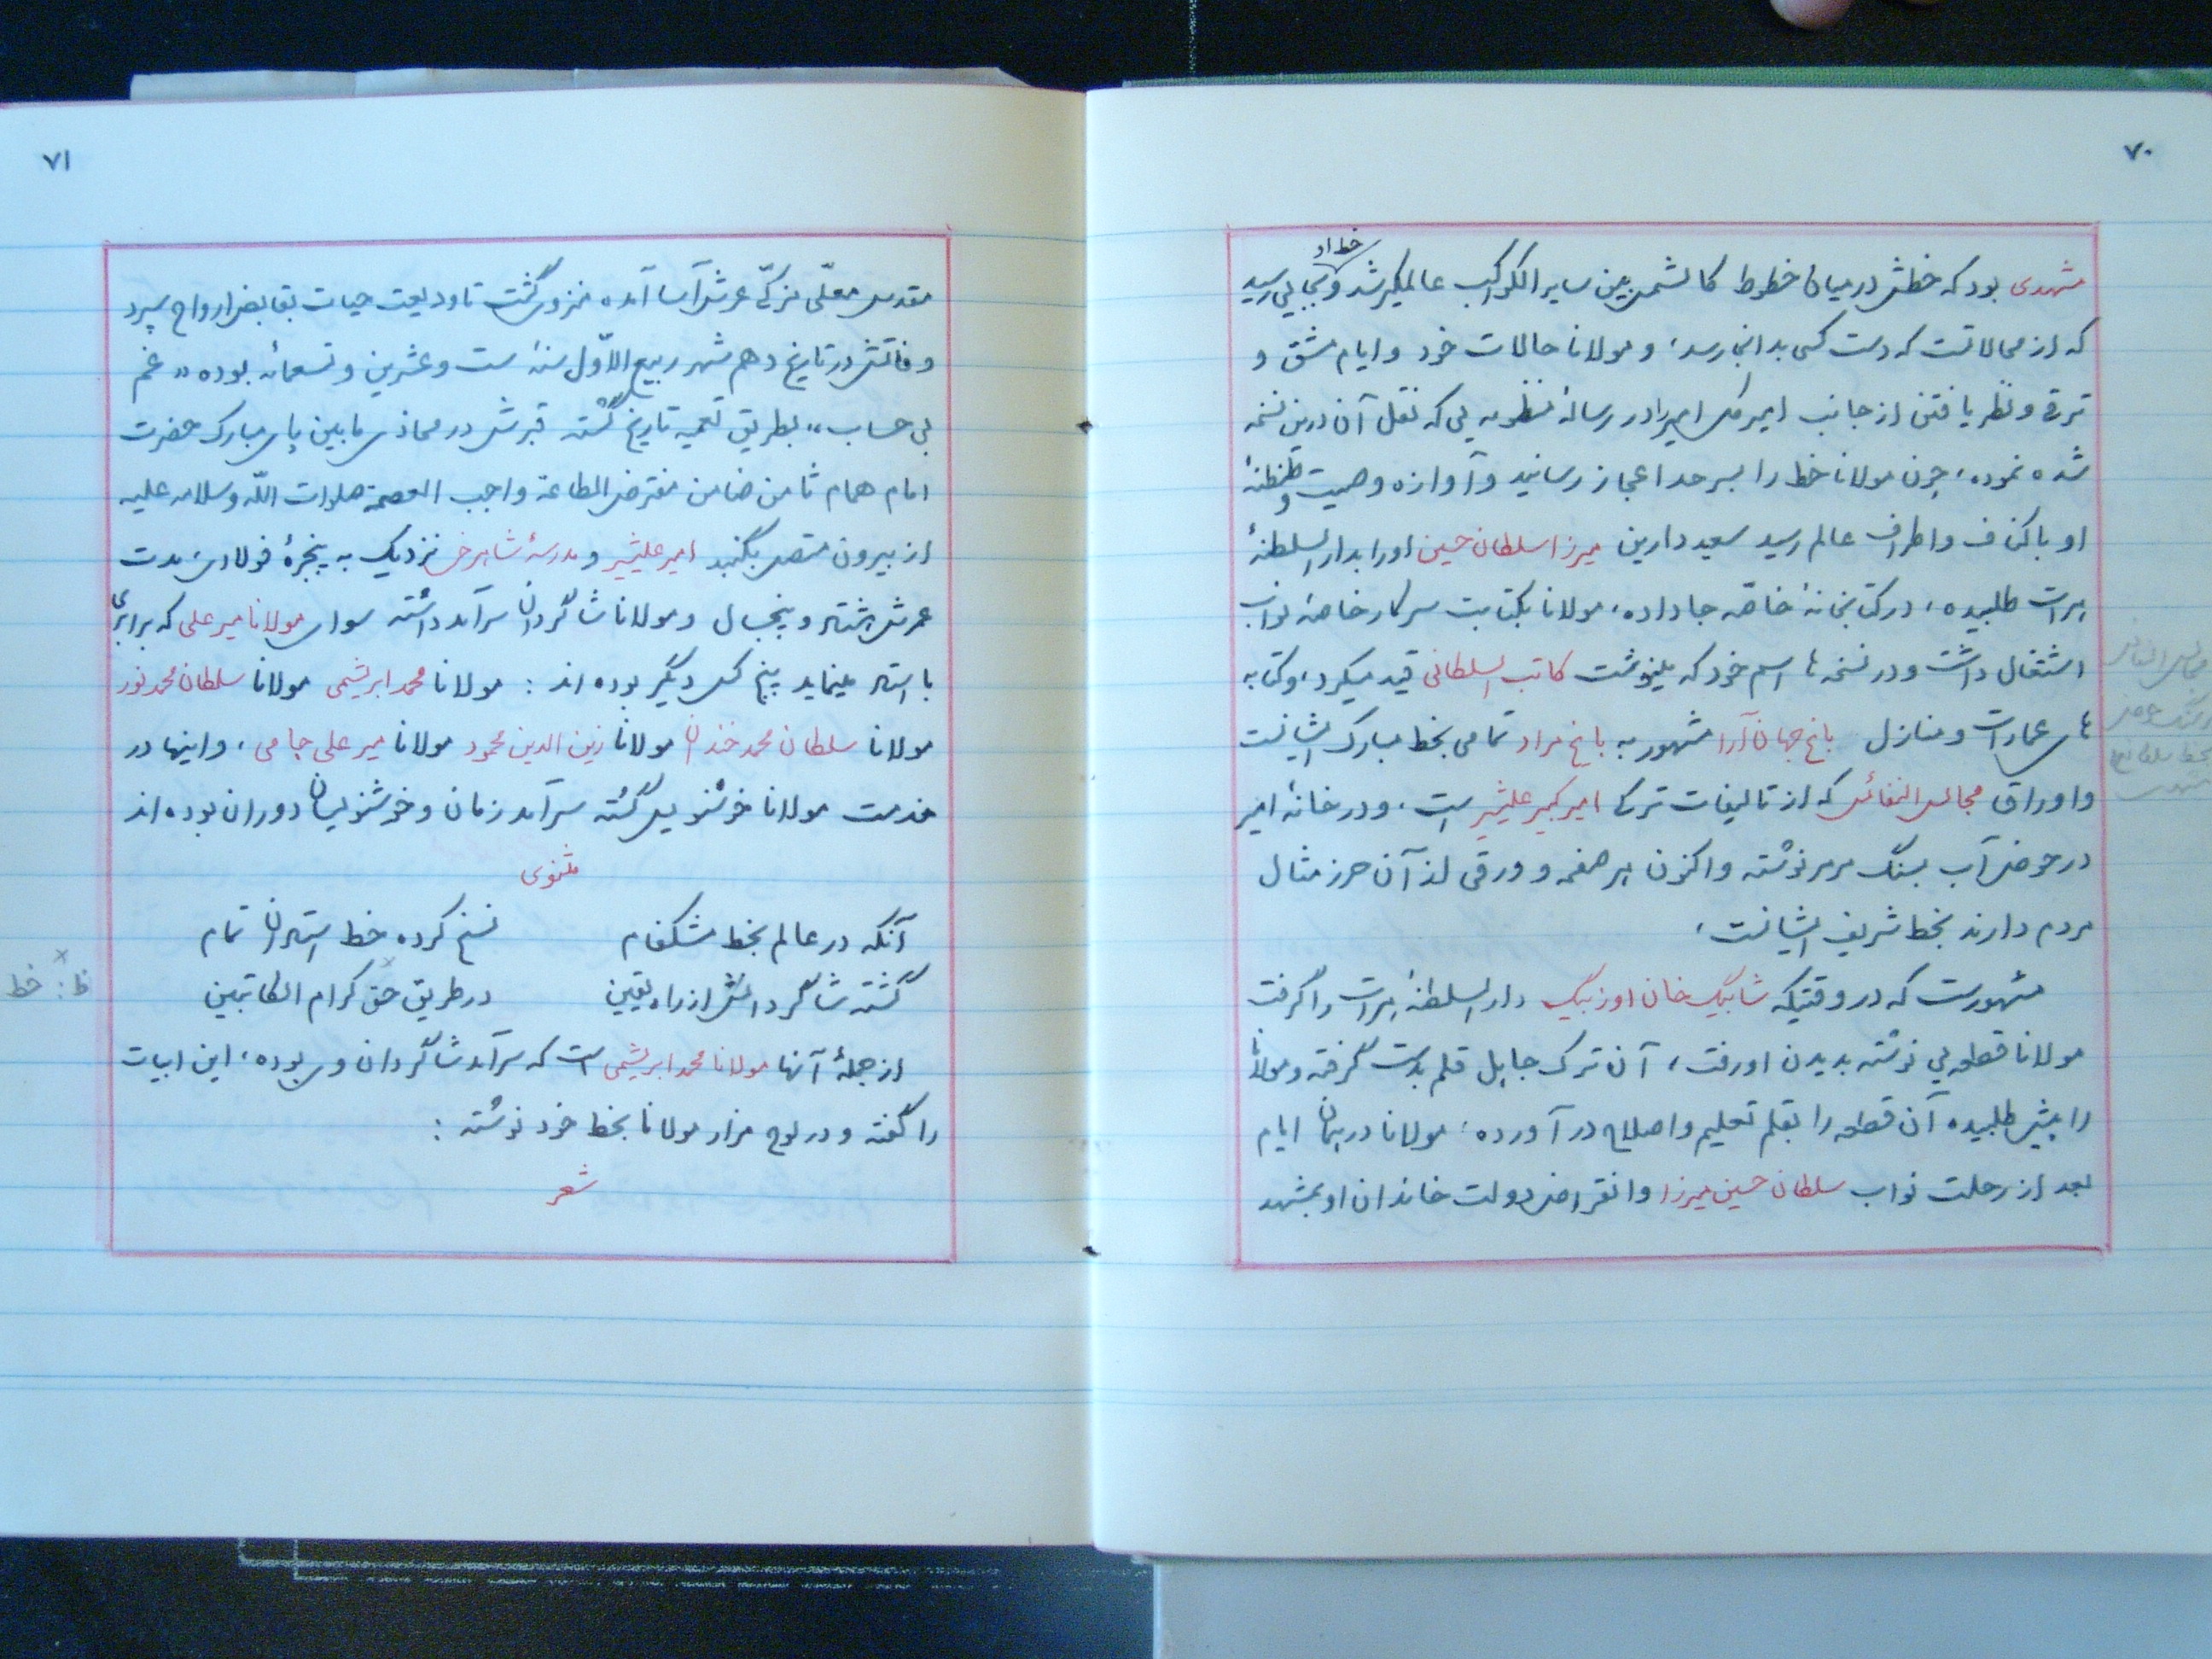 ۷۰
خط او
مشهدی بود که خطش در میان خطوط کالشمس بین سایر الکواکب عالمگیر شد و بجایی رسید
که از محالاتست که دست کسی بدانجا رسد، و مولانا حالات خود و ایام مشق و
ترقی و نظر یافتن از جانب امیر کل امیر را در رسالهٔ منظومه یی که نقل آن درین نسخه
شده نموده، چون مولانا خط را بسرحد اعجاز رسانید و آوازه و صیت و طنطنهٔ
او باکناف و اطراف عالم رسید سعید دارین میرزا سلطان حسین او را بدار السلطنهٔ
هرات طلبیده، در کتابخانهٔ خاصّه جا داده، مولانا بکتابت سرکار خاصهٔ نواب
اشتغال داشت و در نسخه ها اسم خود که مینوشت کاتب السلطانی قید میکرد، و کتابه
های عمارات و منازل باغ جهان آرا مشهور به باغ مراد تمامی بخط مبارک ایشانست
و اوراق مجالس النفائس که از تالیفات ترکی امیر کبیر علیشیر است، و در خانهٔ امیر
در حوض آب بسنگ مرمر نوشته و اکنون هر صفحه و ورقی از آن حرز مثال
مردم دارند بخط شریف ایشانست،
مشهورست که در وقتیکه شاه بیگ خان اوزبک دار السلطنهٔ هرات را گرفت
مولانا قطعه یی نوشته بدیدن او رفت، آن ترک جاهل قلم بدست گرفته و مولانا
را پیش طلبیده آن قطعه را بقلم تعلیم و اصلاح در آورده، مولانا در همان ایام
بعد از رحلت نواب سلطان حسین میرزا و انقراض دولت خاندان او بمشهد
مجالس النفائس
۷۱
مقدس معلّی مزکّی عرش آسا آمده منزوی گشت تا ودیعت حیات بقابض ارواح سپرد
وفاتش در تاریخ دهم شهر ربیع الاوّل سنهٔ ست و عشرین و تسعمائه بوده «غم
بی حساب» بطریق تعمیه تاریخ گشته قبرش در محاذی مابین پای مبارک حضرت
امام همام ثامن ضامن مفترض الطاعة واجب العصمة صلوات اللّه و سلامه علیه
از بیرون متصل بگنبد امیر علیشیر و مدرسهٔ شاهرخی نزدیک به پنجرهٔ فولادی، مدت
عمرش شصت و پنجسال و مولانا شاگردان سرآمد داشته سوای مولانا میر علی که برابری
با استاد مینماید پنج کس دیگر بوده اند: مولانا محمد ابریشمی مولانا سلطان محمد نور
مولانا سلطان محمد خندان مولانا زین الدین محمود مولانا میر علی جامی، و اینها در
خدمت مولانا خوشنویس گشته سرآمد زمان و خوشنویسان دوران بوده اند
مثنوی
آنکه در عالم بخط مشکفام نسخ کرده خط استادان تمام
گشته شاگردانش از راه یقین در طریق حق کرام الکاتبین
ظ: خط
از جملهٔ آنها مولانا محمد ابریشمی است که سرآمد شاگردان وی بوده، این ابیات
را گفته و در لوح مزار مولانا بخط خود نوشته:
شعر